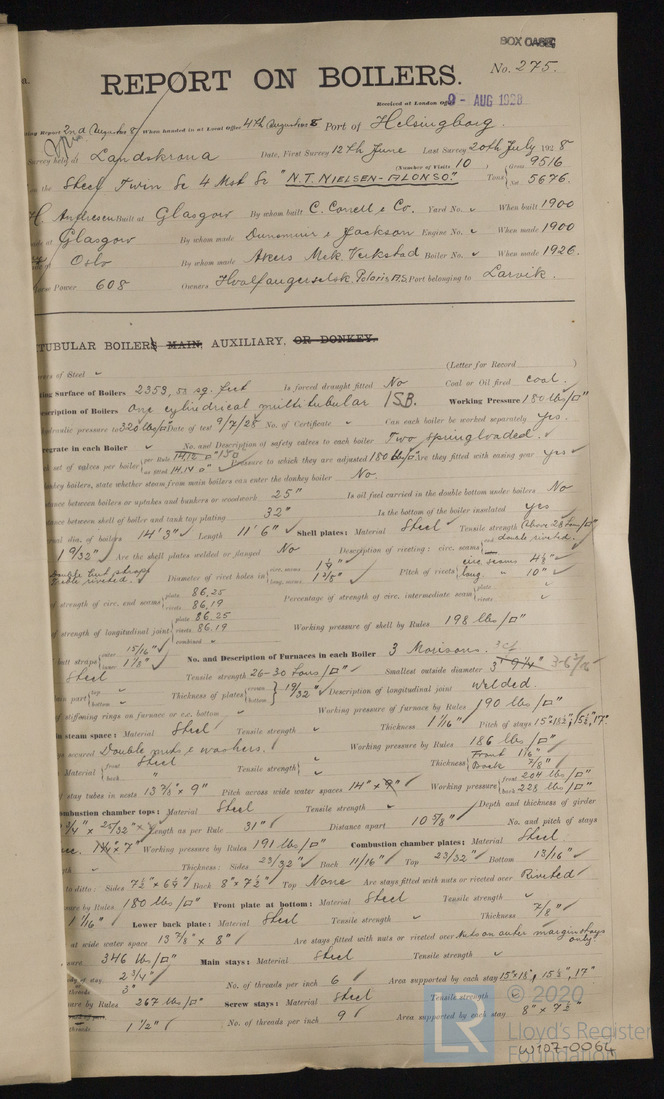 BOX CASE
No. 275.
REPORT ON BOILERS.
Received at London Office 9 - AUG 1928
Report 2nd August 8 When handed in at Local Office 4th August 8 Port of Helsingborg.
Survey held at Landskrona Date, First Survey 12th June Last Survey 20th July 1928
(Number of Visits 10) Gross 9516
on the Steel Twin Sc 4 Mst Sr "N.T. NIELSEN-ALONSO." Tons Net 5676.
H. Andresen Built at Glasgow By whom built C. Connell & Co. Yard No. When built 1900
Glasgow By whom made Dunsmuir & Jackson Engine No. When made 1900
Oslo By whom made Akers Mek Verkstad Boiler No. When made 1926.
Horse Power 608 Owners Hvalfangerselsk. Polaris A.S. Port belonging to Larvik.
TUBULAR BOILERS MAIN, AUXILIARY, OR DONKEY.
of Steel (Letter for Record )
Surface of Boilers 2353, 53 sq. feet Is forced draught fitted No Coal or Oil fired coal.
Description of Boilers one cylindrical multitubular 1SB. Working Pressure 180 lbs/□"
pressure to 320 lbs/□" Date of test 9/7/28 No. of Certificate Can each boiler be worked separately Yes.
grate in each Boiler No. and Description of safety valves to each boiler Two springloaded.
set of valves per boiler per Rule as fitted 14.14 □" Pressure to which they are adjusted 180 lbs/□" Are they fitted with easing gear yes
boilers, state whether steam from main boilers can enter the donkey boiler No.
between boilers or uptakes and bunkers or woodwork 25" Is oil fuel carried in the double bottom under boilers No
between shell of boiler and tank top plating 32" Is the bottom of the boiler insulated yes
dia. of boilers 14' 3" Length 11' 6" Shell plates: Material Steel Tensile strength above 28 tons/□"
1 9/32" Are the shell plates welded or flanged No Description of riveting: circ. seams end double riveted.
Double butt straps riveted. Diameter of rivet holes in circ. seams 1 1/4" long. seams 1 3/8" Pitch of rivets circ seams 4 1/2" long. " 10"
of strength of circ. end seams plate 86.25 rivets 86.19 Percentage of strength of circ. intermediate seam plate rivets
of strength of longitudinal joint plate 86.25 rivets 86.19 combined Working pressure of shell by Rules 198 lbs/□"
butt straps outer 15/16" inner 1 1/8" No. and Description of Furnaces in each Boiler 3 Morisons.
Steel Tensile strength 26-30 tons/□" Smallest outside diameter
plain part top bottom Thickness of plates crown bottom 19/32" Description of longitudinal joint welded.
of stiffening rings on furnace or c.c. bottom Working pressure of furnace by Rules 190 lbs/□"
in steam space: Material Steel Tensile strength Thickness 1 1/16" Pitch of stays 15"·18 1/2", 15 1/2", 17"
secured Double nuts & washers. Working pressure by Rules 186 lbs/□"
Material front Steel back " Tensile strength Thickness Front 1 1/16" Back 7/8"
stay tubes in nests 13 7/8" × 9" Pitch across wide water spaces 14" × 9" Working pressure front 204 lbs/□" back 228 lbs/□"
Combustion chamber tops: Material Steel Tensile strength Depth and thickness of girder
Length as per Rule 31" Distance apart 10 5/8" No. and pitch of stays
Working pressure by Rules 191 lbs/□" Combustion chamber plates: Material Steel
Thickness: Sides 23/32" Back 11/16" Top 23/32" Bottom 13/16"
to ditto: Sides 7 1/2" × 6 1/4" Back 8" × 7 1/2" Top None Are stays fitted with nuts or riveted over Riveted
by Rules 180 lbs/□" Front plate at bottom: Material Steel Tensile strength
1 1/16" Lower back plate: Material Steel Tensile strength Thickness 7/8"
at wide water space 13 7/8" × 8" Are stays fitted with nuts or riveted over Nuts on outer margin stays only.
346 lbs/□" Main stays: Material Steel Tensile strength
of stay 2 3/4" 3" No. of threads per inch 6 Area supported by each stay 15"·18", 15 1/2", 17"
by Rules 267 lbs/□" Screw stays: Material Steel Tensile strength
threads 1 1/2" No. of threads per inch 9 Area supported by each stay 8" × 7 1/2"
© 2020
LR
Lloyd's Register
Foundation
W107-0064